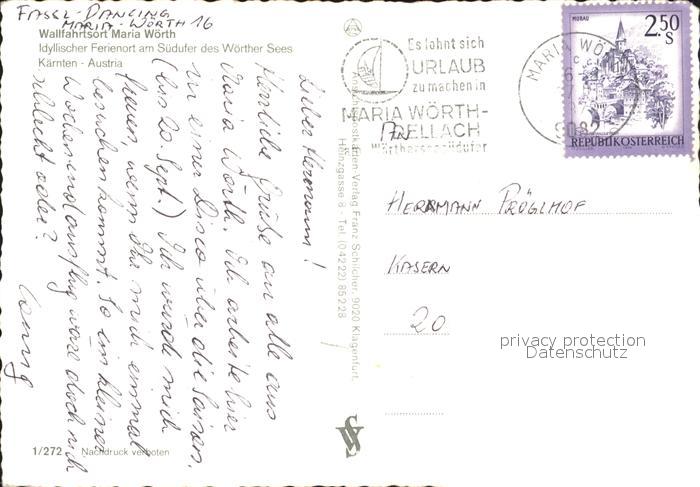 FASSL-DANCING
MARIA-WÖRTH 16
Wallfahrtsort Maria Wörth
Idyllischer Ferienort am Südufer des Wörther Sees
Kärnten - Austria
Lieber Hermann!
Herzliche Grüße an alle aus
Maria Wörth. Ich arbeite hier
in einer Disco über die Saison.
(bis 20. Sept.) Ich würde mich
freuen, wenn Ihr mich einmal
besuchen kommt. So ein kleiner
Wochenendausflug wäre doch nicht
schlecht oder?
Conny
1/272
Nachdruck verboten
Postkarten-Verlag Franz Schilcher, 9020 Klagenfurt,
Heinzgasse 8 - Tel. (04222) 85228
Es lohnt sich
URLAUB
zu machen in
MARIA WÖRTH-
Wörtherseesüdufer
MARIA WÖ
9082
MURAU
2.50
S
REPUBLIK ÖSTERREICH
AN
HERRMANN PRÖGLHOF
KASERN
20
privacy protection
Datenschutz